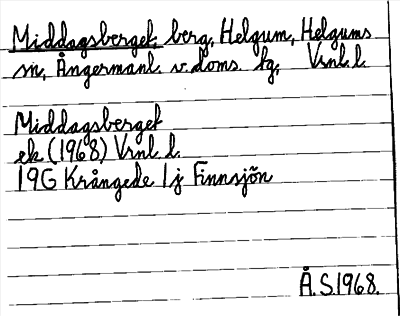 Middagsberget, berg, Helgum, Helgums
sn, Ångermanl. v. doms. tg, Vrnl. l.
Middagsberget
ek (1968) Vrnl. l.
19G Krångede 1j Finnsjön
Å.S. 1968.